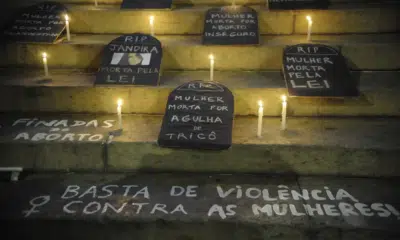 RIP
MULHER
MORTA POR
ABORTO
INSEGURO
RIP
JANDIRA
MORTA PELA
LEI
RIP
MULHER
MORTA PELA
LEI
RIP
MULHER
MORTA POR
AGULHA
DE
TRICÔ
FINADAS
DO
ABORTO!
♀ BASTA DE VIOLÊNCIA
CONTRA AS MULHERES!